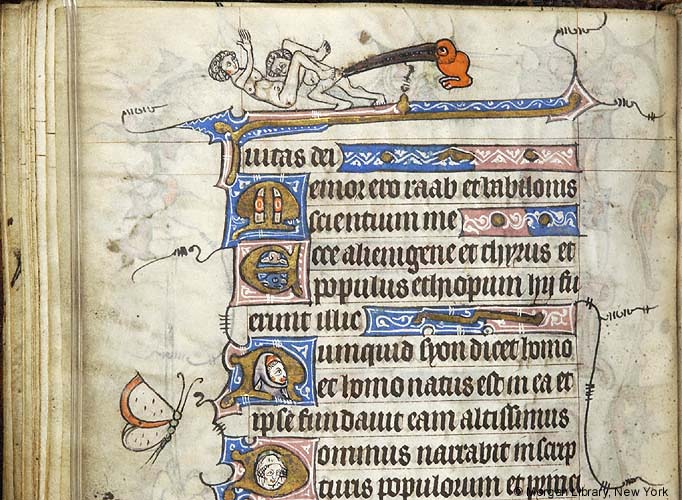 ciuitas dei
Memor ero raab et babilonis
scientium me
Ecce alienigene et thyrus et
populus ethiopum hij fu
erunt illic
Numquid syon dicet homo
et homo natus est in ea et
ipse fundauit eam altissimus
Dominus narrabit in scrip
turis populorum et princi
© Morgan Library, New York